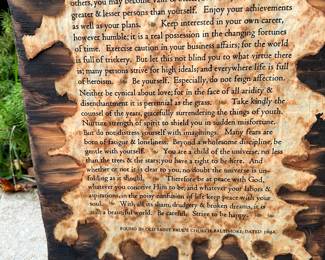 others, you may become vain &
greater & lesser persons than yourself. Enjoy your achievements
as well as your plans. Keep interested in your own career,
however humble; it is a real possession in the changing fortunes
of time. Exercise caution in your business affairs; for the world
is full of trickery. But let this not blind you to what virtue there
is; many persons strive for high ideals; and everywhere life is full
of heroism. Be yourself. Especially, do not feign affection.
Neither be cynical about love; for in the face of all aridity &
disenchantment it is perennial as the grass. Take kindly the
counsel of the years, gracefully surrendering the things of youth.
Nurture strength of spirit to shield you in sudden misfortune.
But do not distress yourself with imaginings. Many fears are
born of fatigue & loneliness. Beyond a wholesome discipline, be
gentle with yourself. You are a child of the universe, no less
than the trees & the stars; you have a right to be here. And
whether or not it is clear to you, no doubt the universe is un-
folding as it should. Therefore be at peace with God,
whatever you conceive Him to be, and whatever your labors &
aspirations, in the noisy confusion of life keep peace with your
soul. With all its sham, drudgery & broken dreams, it is
still a beautiful world. Be careful. Strive to be happy.
FOUND IN OLD SAINT PAUL'S CHURCH, BALTIMORE; DATED 1692